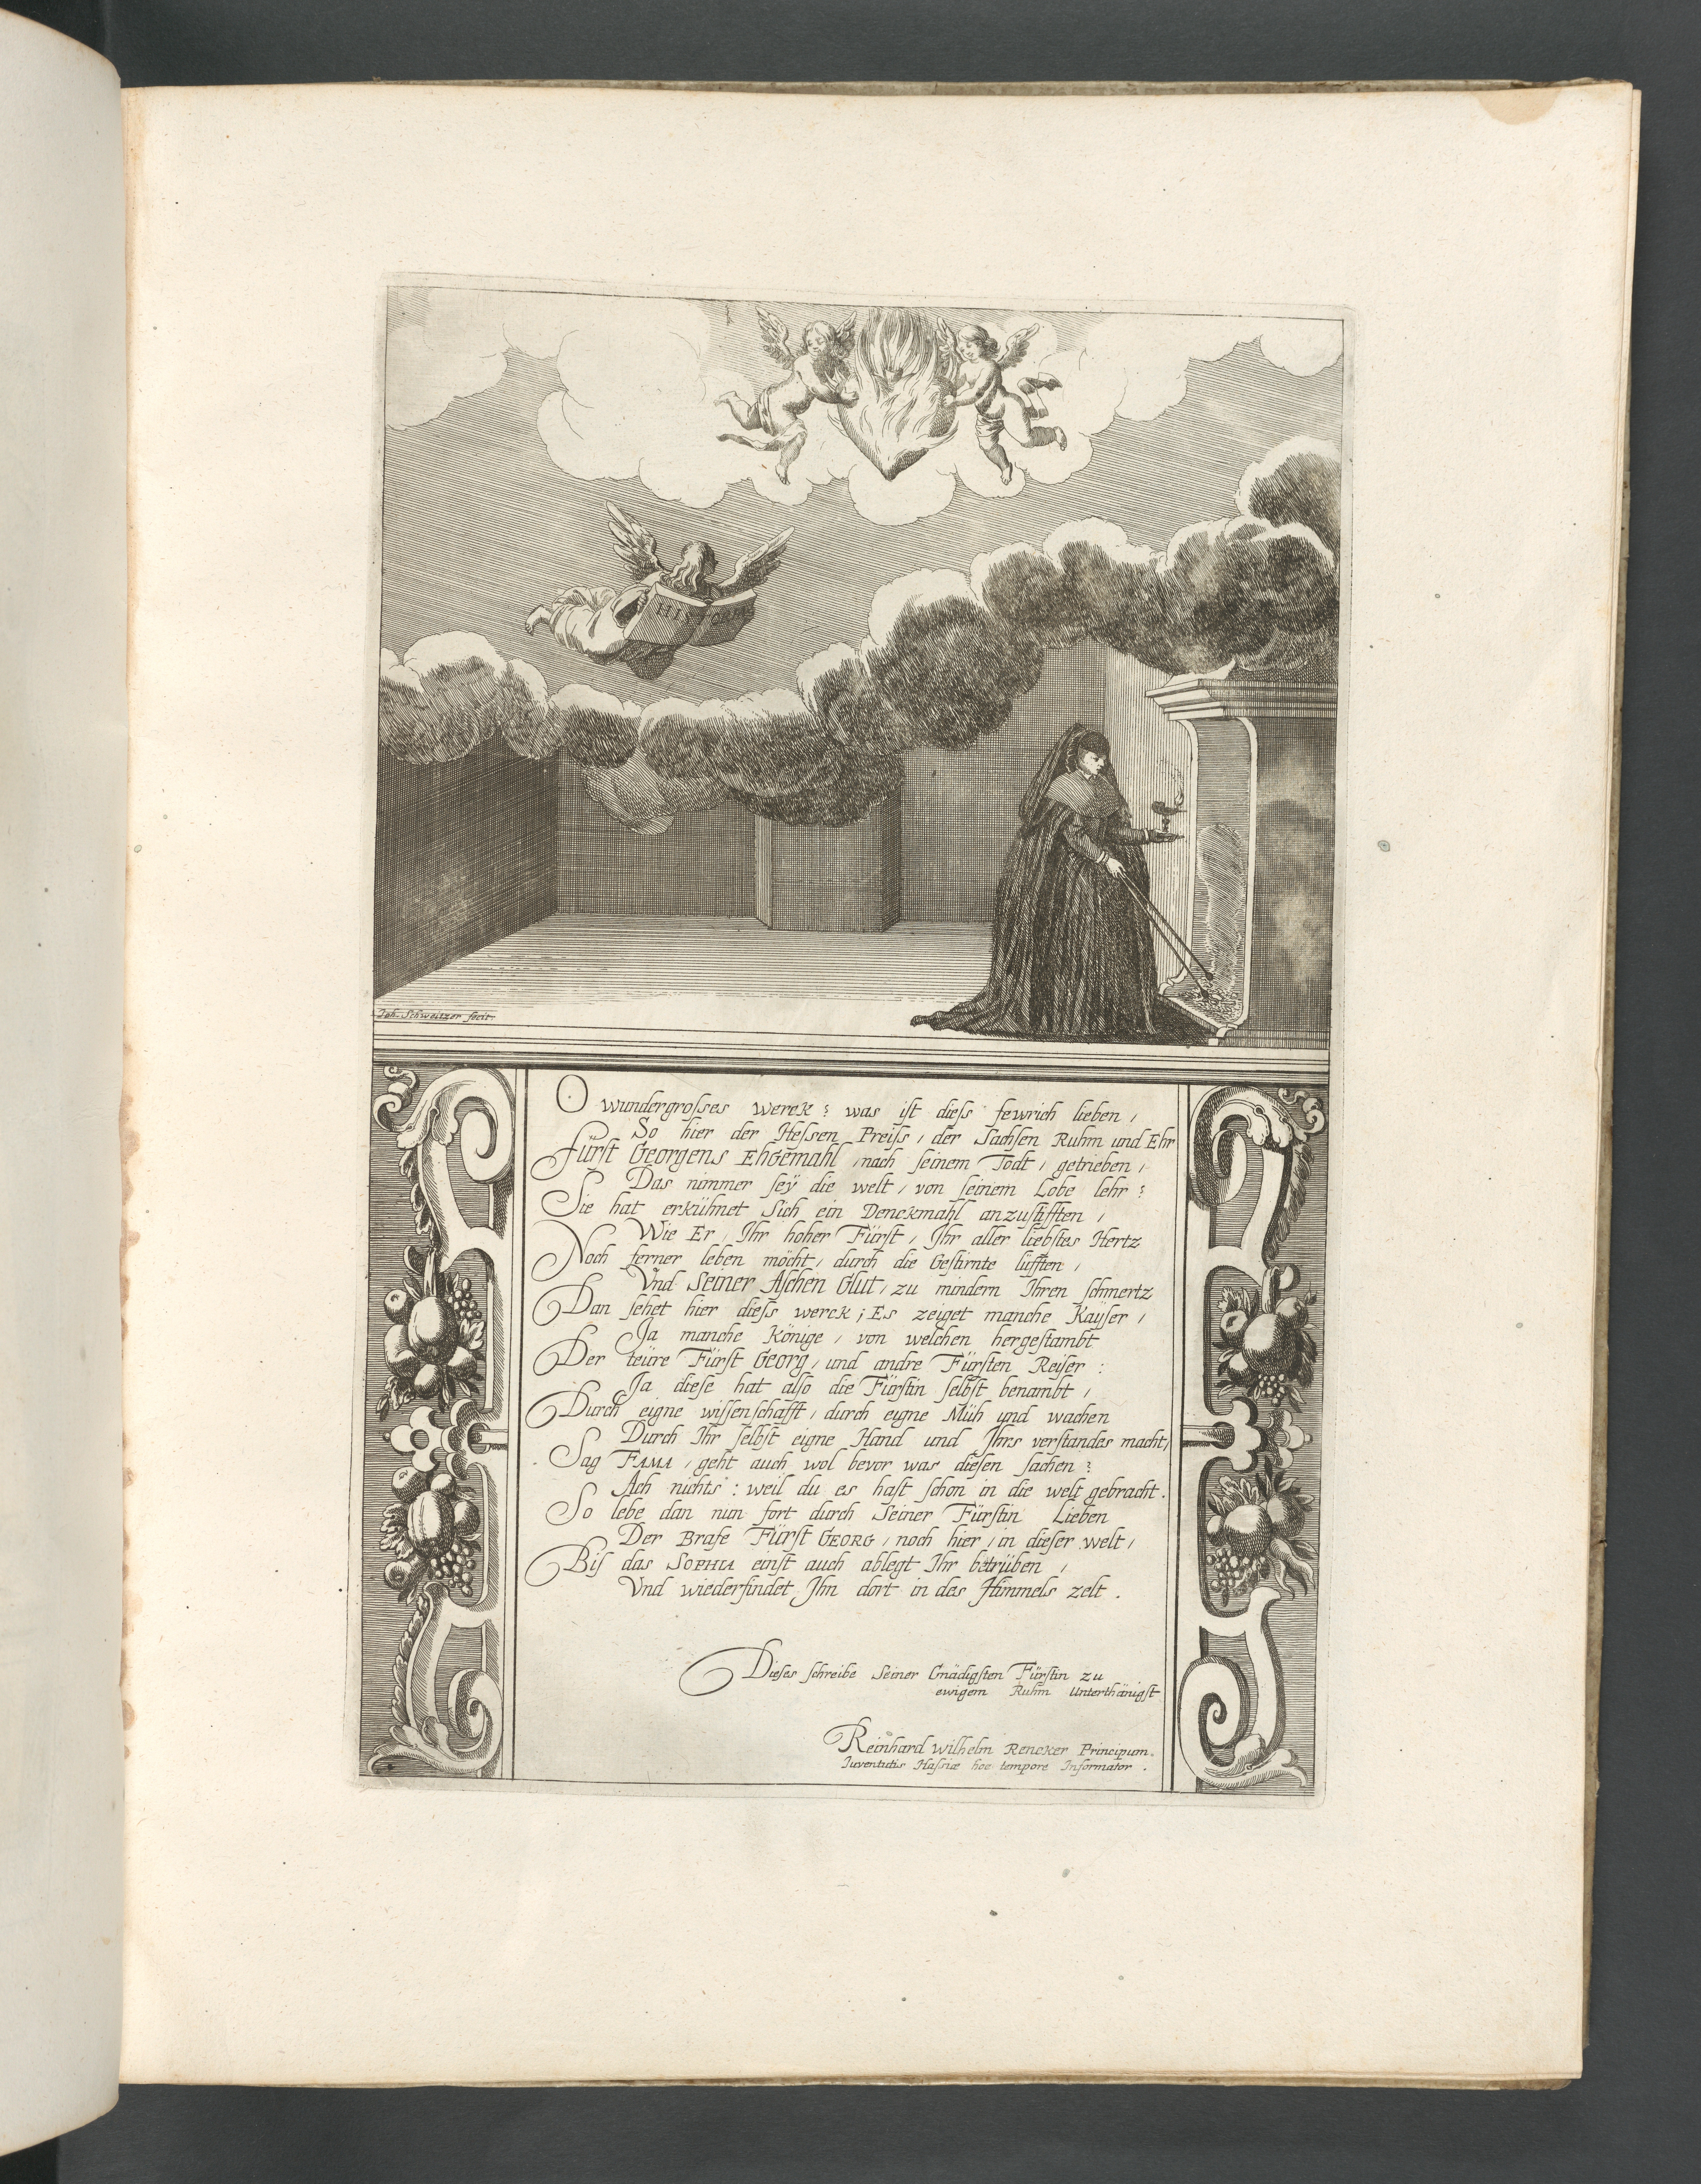 HIS
Joh. Schweitzer fecit.
O wundergrosses Werck? was ist diess fewrich lieben,
So hier der Hessen Preiss, der Sachsen Ruhm und Ehr
Fürst Georgens Ehgemahl, nach seinem Todt, getrieben,
Das nimmer seÿ die welt, von seinem Lobe lehr?
Sie hat erkühnet Sich ein Denckmahl anzustifften,
Wie Er, Ihr hoher Fürst, Ihr aller liebstes Hertz
Noch ferner leben möcht, durch die Gestirnte lüfften,
Vnd Seiner Aschen Glut, zu mindern Ihren schmertz
Dan sehet hier diess werck; Es zeiget manche Kaÿser,
Ja manche Könige, von welchen hergestambt
Der teüre Fürst Georg, und andre Fürsten Reiser:
Ja diese hat also die Fürstin selbst benambt,
Durch eigne wissenschafft, durch eigne Müh und wachen
Durch Ihr selbst eigne Hand und Ihrs verstandes macht,
Sag FAMA, geht auch wol bevor was diesen sachen?
Ach nichts: weil du es hast schon in die welt gebracht.
So lebe dan nun fort durch Seiner Fürstin Lieben
Der Brafe Fürst GEORG, noch hier, in dieser welt,
Bis das SOPHIA einst auch ablegt Ihr betrüben,
Vnd wiederfindet Ihn dort in des Himmels zelt.
Dieses schreibe Seiner Gnädigsten Fürstin zu
ewigem Ruhm Unterthänigst
Reinhard Wilhelm Rencker Principum.
Juventutis Hassiæ hoc tempore Informator.